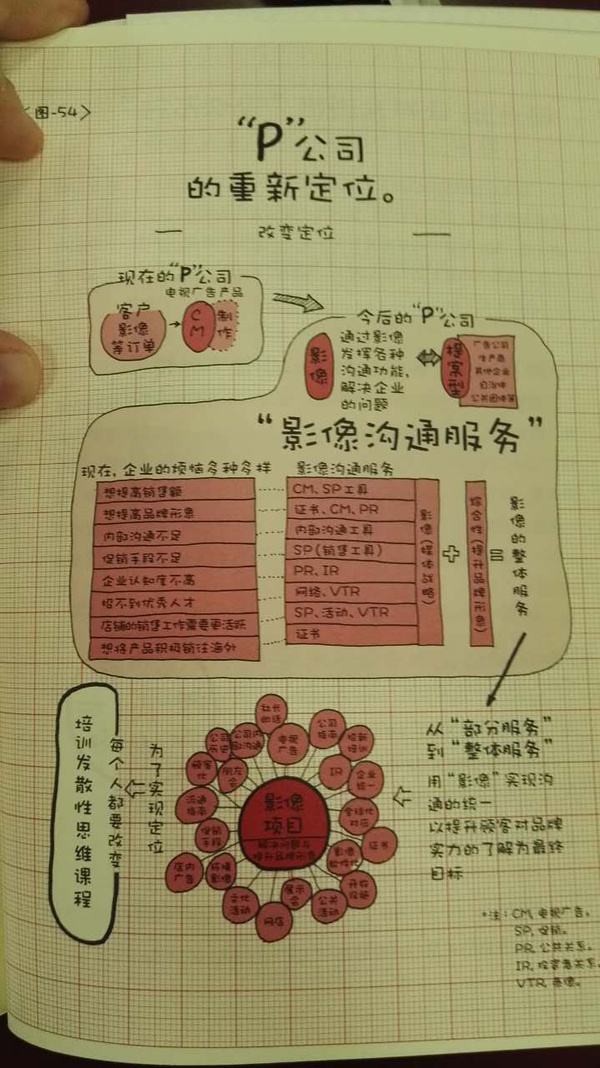 <图-54>
“P”公司
的重新定位。
改变定位
现在的“P”公司
电视广告产品
客户
影像
等订单
CM
制作
今后的“P”公司
影像
通过影像
发挥各种
沟通功能,
解决企业
的问题
提案型
广告公司
生产商
其他企业
自治体
公共团体等
“影像沟通服务”
现在,企业的烦恼多种多样
想提高销售额
想提高品牌形意
内部沟通不足
促销手段不足
企业认知度不高
招不到优秀人才
店铺的销售工作需要更活跃
想将产品积极销往海外
影像沟通服务
CM、SP工具
证书、CM、PR
内部沟通工具
SP(销售工具)
PR、IR
网络、VTR
SP、活动、VTR
证书
影像(媒体战略)
+
综合性(提升品牌形意)
=
影像的整体服务
从“部分服务”
到“整体服务”
用“影像”实现沟
通的统一
以提升顾客对品牌
实力的了解为最终
目标
影像
项目
解决问题与
提升品牌形意
社长
的话
电视
广告
公司
指南
招新
培训
IR
企业
统一
全球化
对应
证书
影像
软性化
开发
设施
公共
活动
展示
会
网店
文化
活动
环境
影像
店内
广告
促销
手段
流通
指南
顾客
化
朋友
会
公司
历史
公司
内部沟通
为了实现定位
每个人都要改变
培训发散性思维课程
*注:CM,电视广告。
SP,促销。
PR,公共关系。
IR,投资者关系。
VTR,录像。